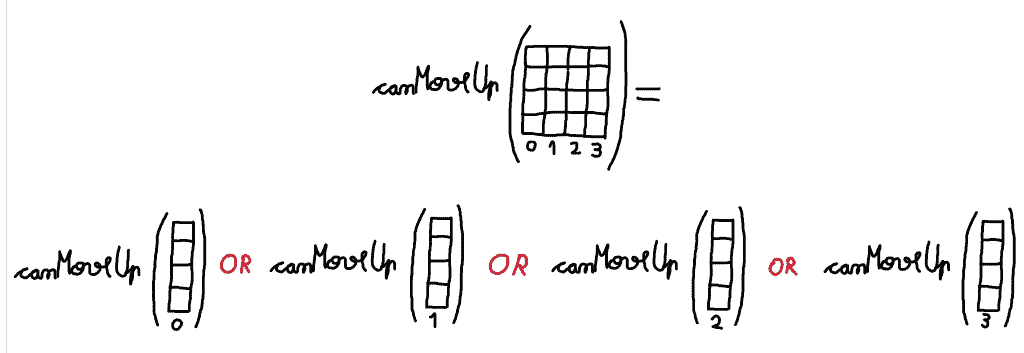 canMoveUp ( ) =
0 1 2 3
canMoveUp ( ) OR canMoveUp ( ) OR canMoveUp ( ) OR canMoveUp ( )
0 1 2 3